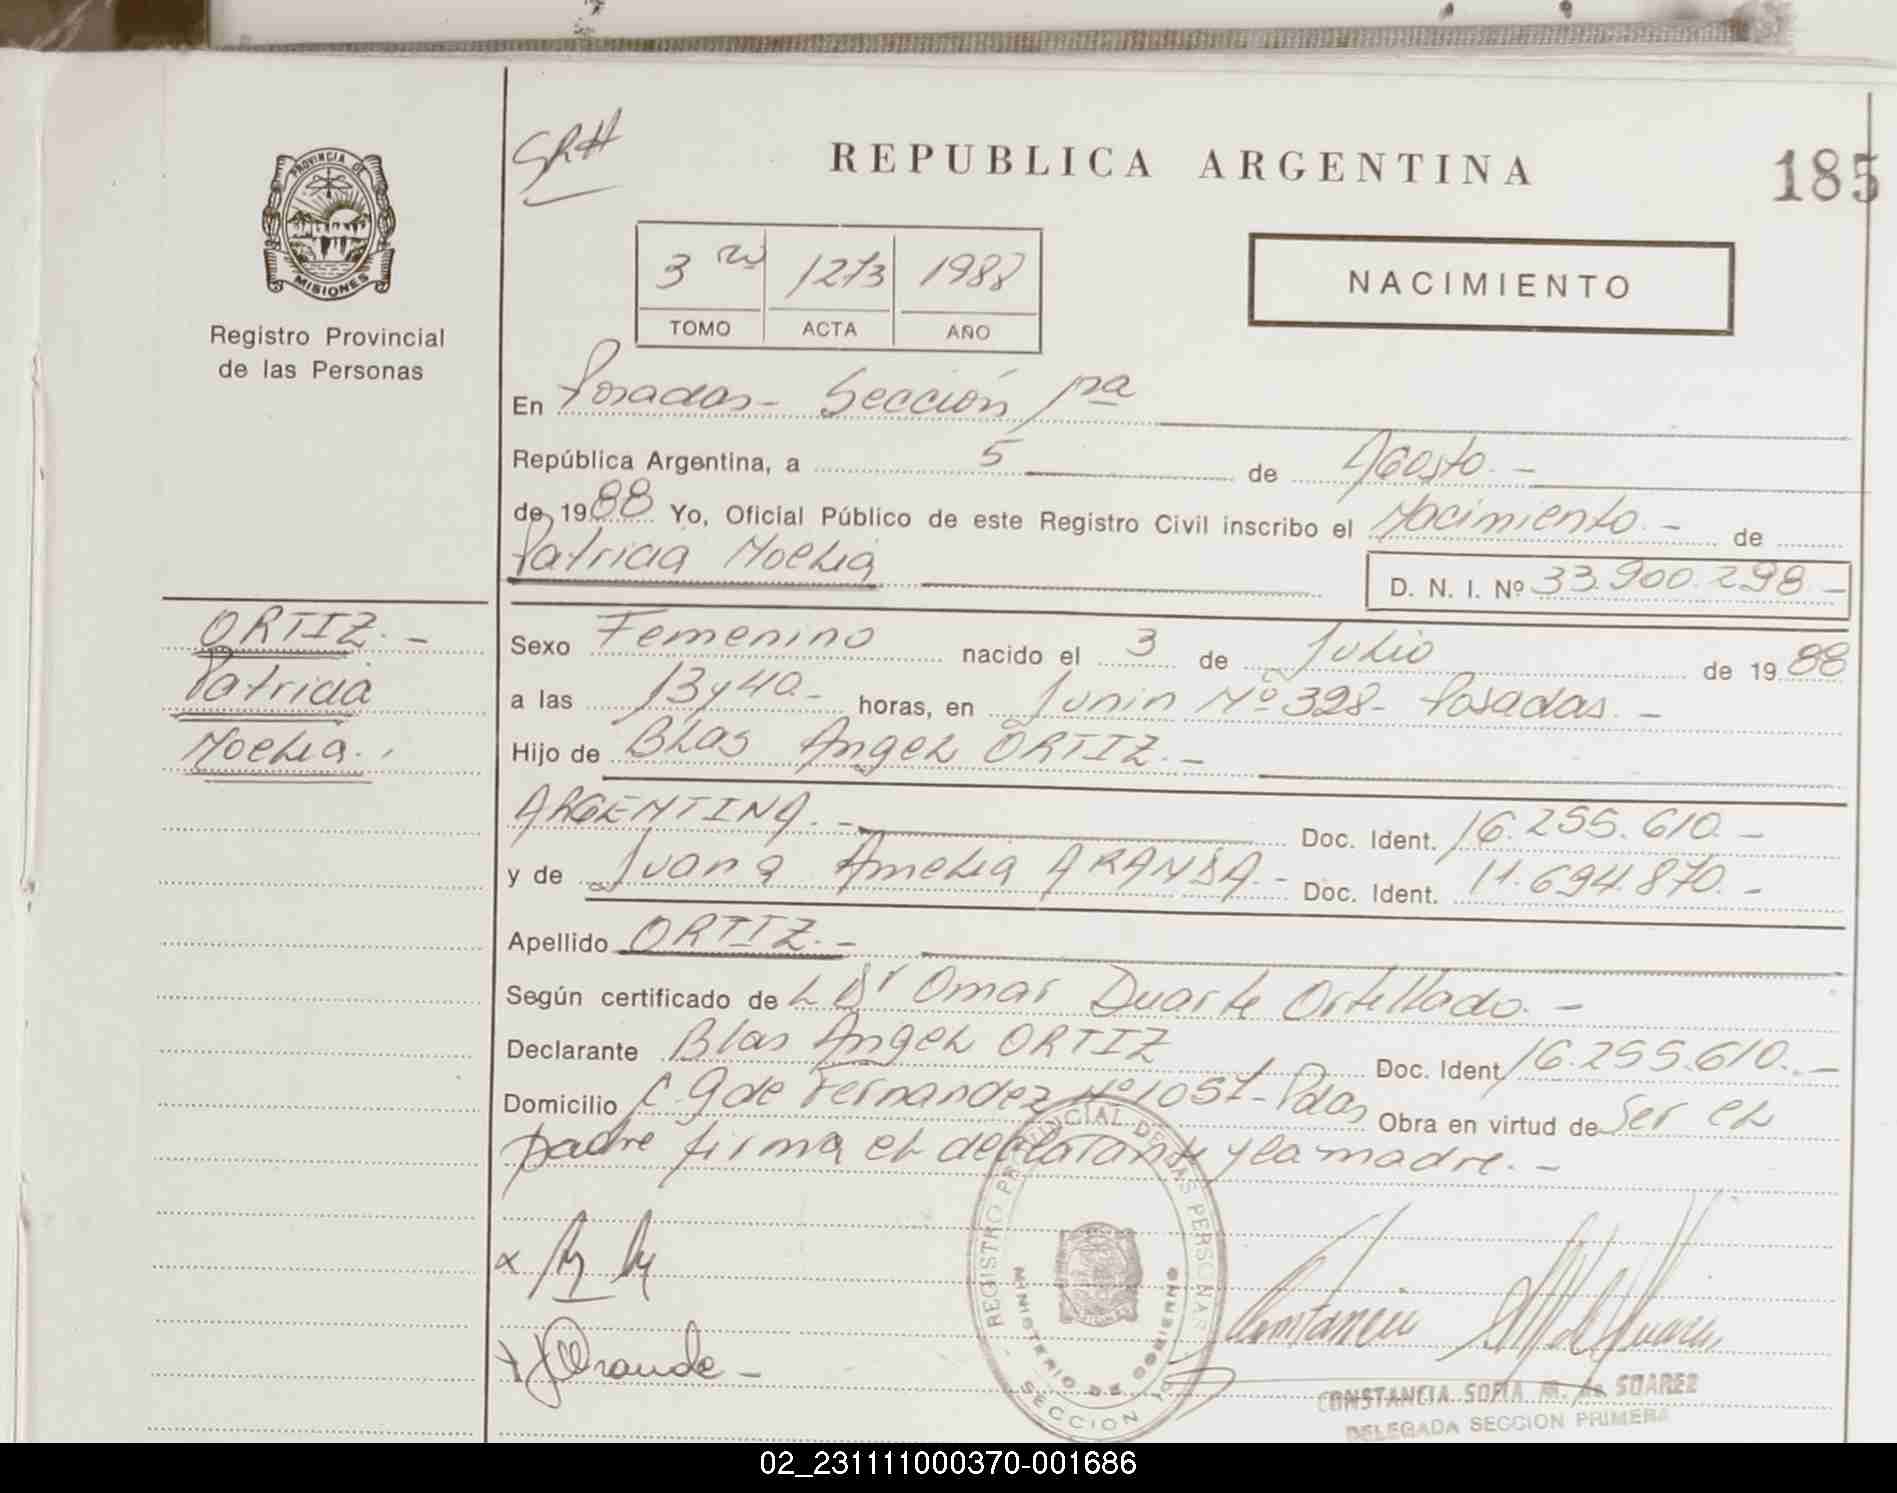 PROVINCIA DE
MISIONES
Registro Provincial
de las Personas
ORTIZ.-
Patricia
Noelia.
SRH
REPUBLICA ARGENTINA
185
3ro 1273 1988
TOMO ACTA AÑO
NACIMIENTO
En Posadas- Sección 1ra
República Argentina, a 5 de Agosto.-
de 1988 Yo, Oficial Público de este Registro Civil inscribo el Nacimiento.- de
Patricia Noelia D. N. I. Nº 33.900.298.-
Sexo Femenino nacido el 3 de Julio de 1988
a las 13y40- horas, en Junin Nº 328- Posadas.-
Hijo de Blas Angel ORTIZ.-
ARGENTINA.- Doc. Ident. 16.255.610.-
y de Juana Amelia ARANDA.- Doc. Ident. 11.694.870.-
Apellido ORTIZ.-
Según certificado de L Dr Omar Duarte Ortellado.-
Declarante Blas Angel ORTIZ Doc. Ident. 16.255.610.-
Domicilio C. Gde Fernandez Nº 1057- Pdas Obra en virtud de Ser el
padre firma el declarante y la madre.-
REGISTRO PROVINCIAL DE LAS PERSONAS
MINISTERIO DE GOBIERNO
SECCION 1a
CONSTANCIA SOFIA M. de SUAREZ
DELEGADA SECCION PRIMERA
02_231111000370-001686